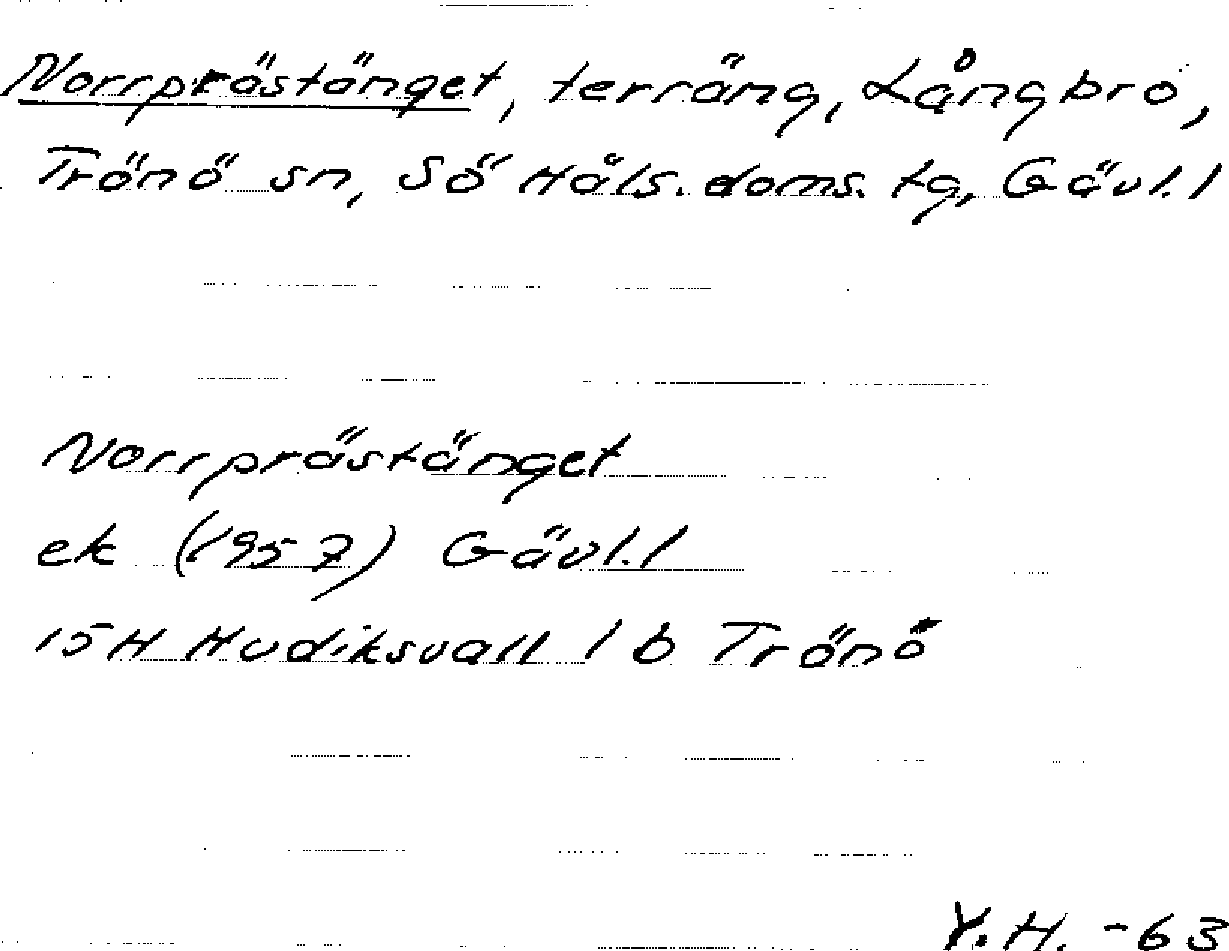 Norrprästänget, terräng, Långbro,
Trönö sn, Sö Häls. doms. tg, Gävl. l
Norrprästänget
ek (1957) Gävl. l
15H Hudiksvall 1 b Trönö
Y.H. -63